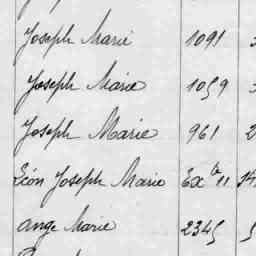 Joseph Marie 1091
Joseph Marie 1059
Joseph Marie 961 2
Léon Joseph Marie Ex te 11 14
Ange Marie 2345